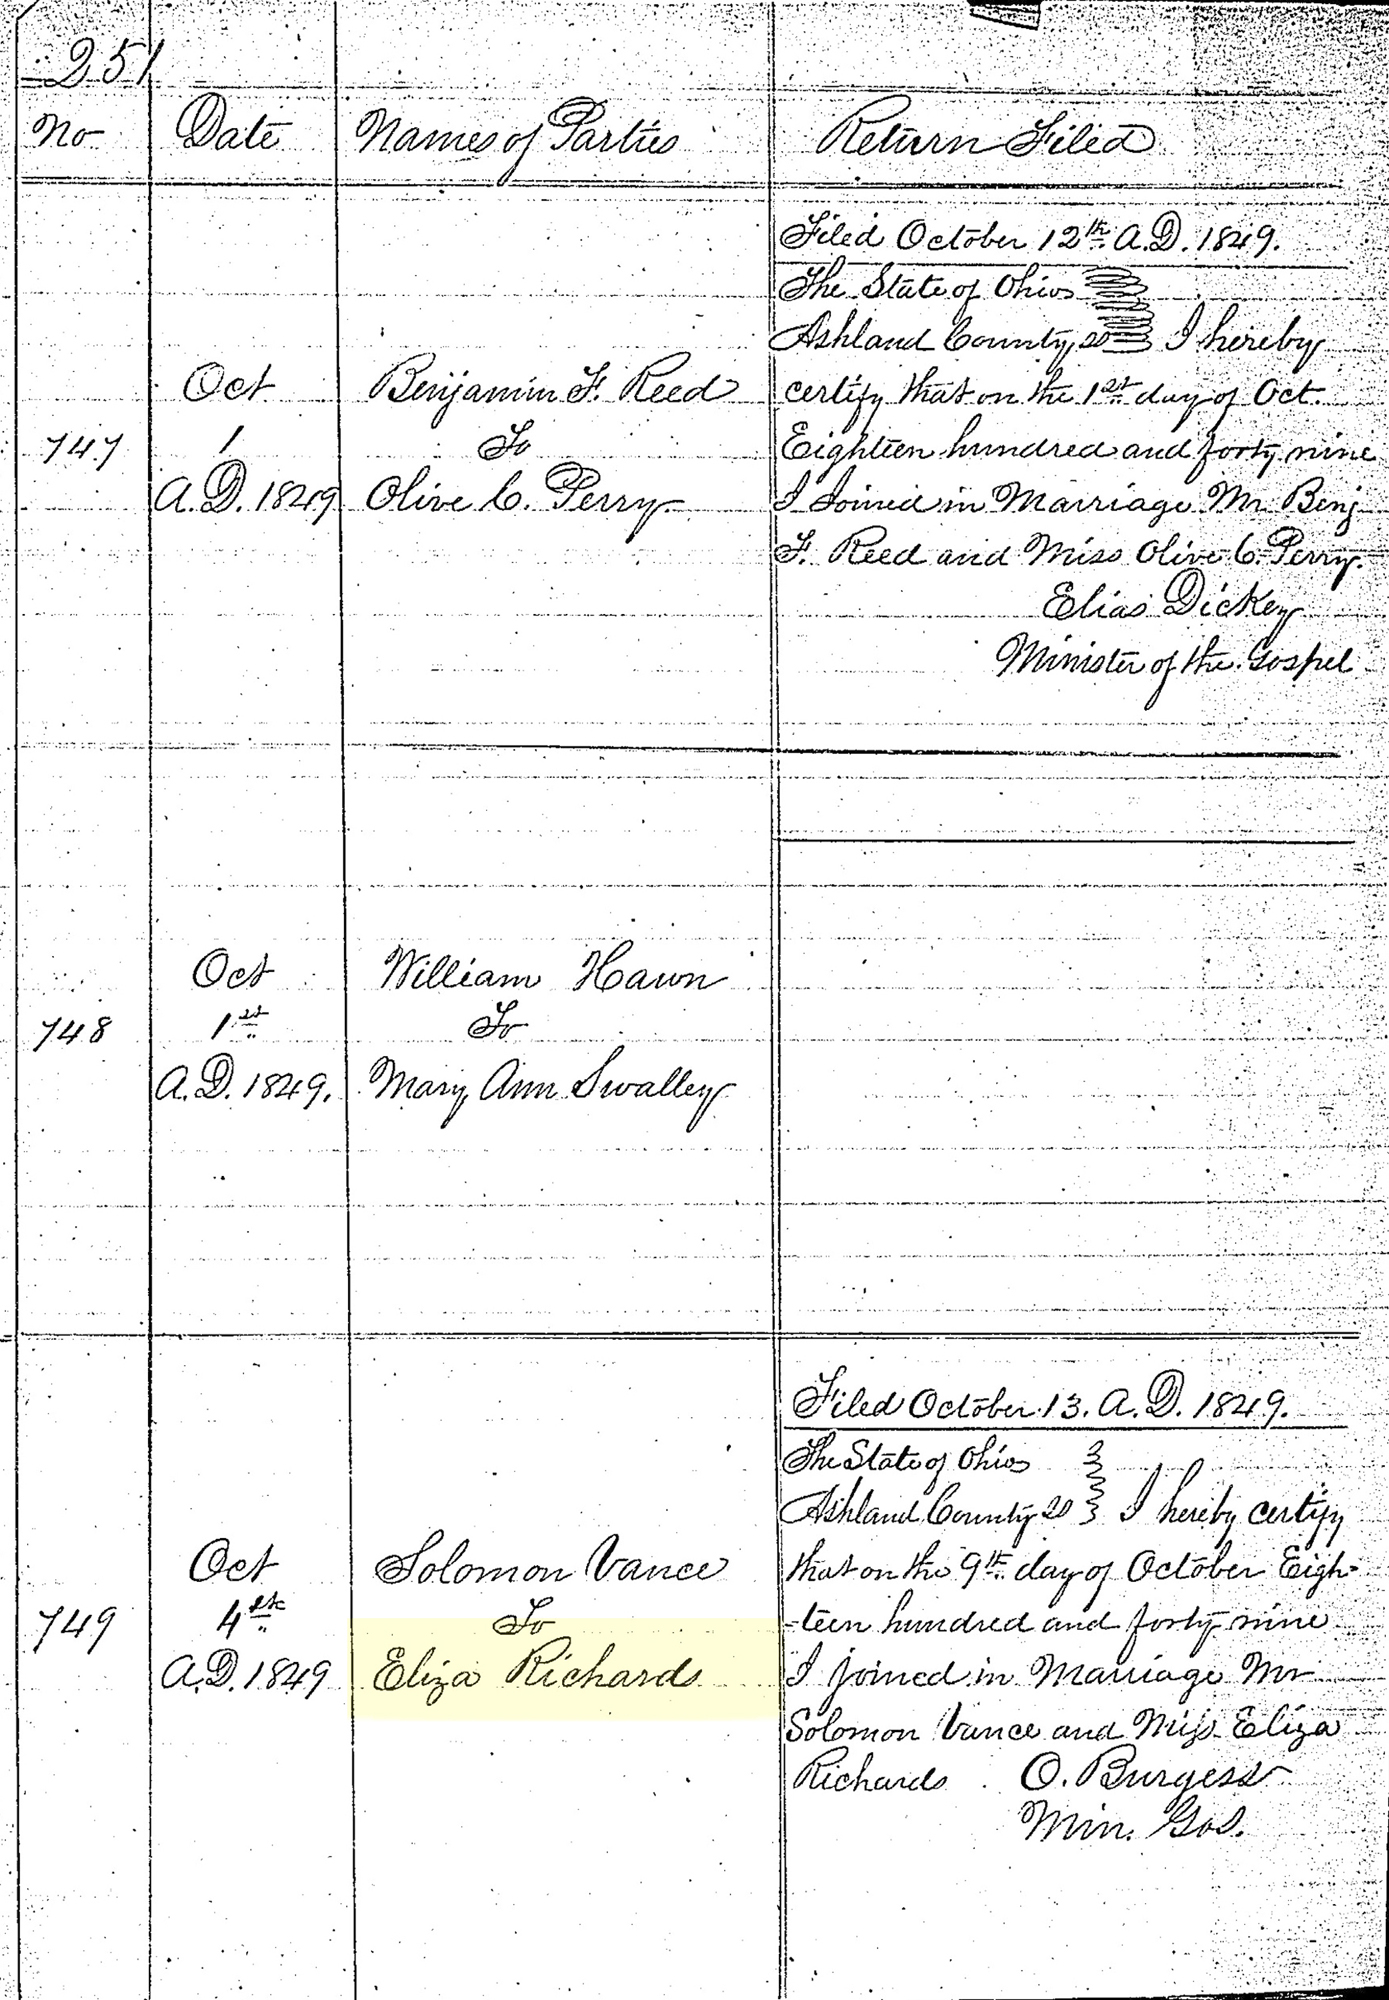 251
No Date Names of Parties Return Filed
Filed October 12th A.D. 1849.
The State of Ohio
Ashland County, ss I hereby
Oct Benjamin F. Reed certify that on the 1st day of Oct.
747 1 To Eighteen hundred and forty nine
A.D. 1849 Olive C. Perry I Joined in Marriage Mr. Benj
F. Reed and Miss Olive C. Perry.
Elias Dickey
Minister of the Gospel
Oct William Hawn
748 1st To
A.D. 1849. Mary Ann Swalley
Filed October 13. A.D. 1849.
The State of Ohio
Ashland County ss I hereby certify
Oct Solomon Vance that on the 9th day of October Eigh-
749 4th To -teen hundred and forty nine
A.D. 1849 Eliza Richards I joined in Marriage Mr
Solomon Vance and Miss Eliza
Richards O. Burgess
Min. Gos.